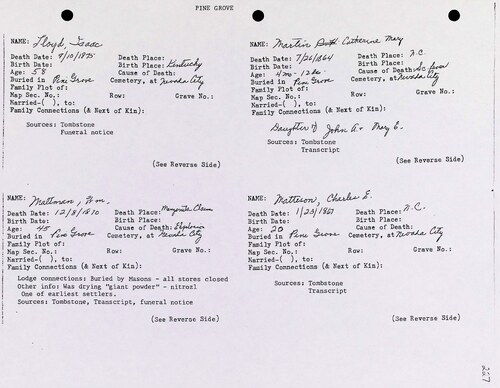 PINE GROVE
NAME: Lloyd, Isaac
Death Date: 9/10/1875 Death Place:
Birth Date: Birth Place: Kentucky
Age: 58 Cause of Death:
Buried in Pine Grove Cemetery, at Nevada City
Family Plot of:
Map Sec. No.: Row: Grave No.:
Married-( ), to:
Family Connections (& Next of Kin):
Sources: Tombstone
Funeral notice
(See Reverse Side)
NAME: Martin Catherine Mary
Death Date: 7/26/1864 Death Place: N.C.
Birth Date: Birth Place:
Age: 4 mo - 12 da. Cause of Death: Sc. fever
Buried in Pine Grove Cemetery, at Nevada City
Family Plot of:
Map Sec. No.: Row: Grave No.:
Married-( ), to:
Family Connections (& Next of Kin):
Daughter of John A. & Mary E.
Sources: Tombstone
Transcript
(See Reverse Side)
NAME: Mattason, Wm.
Death Date: 12/8/1870 Death Place:
Birth Date: Birth Place:
Age: 45 Cause of Death: Explosion
Buried in Pine Grove Cemetery, at Nevada City
Family Plot of:
Map Sec. No.: Row: Grave No.:
Married-( ), to:
Family Connections (& Next of Kin):
Lodge connections: Buried by Masons - all stores closed
Other info: Was drying "giant powder" - nitrozl
One of earliest settlers.
Sources: Tombstone, Transcript, funeral notice
(See Reverse Side)
NAME: Matteson, Charles E.
Death Date: 1/23/1867 Death Place: N.C.
Birth Date: Birth Place:
Age: 20 Cause of Death:
Buried in Pine Grove Cemetery, at Nevada City
Family Plot of:
Map Sec. No.: Row: Grave No.:
Married-( ), to:
Family Connections (& Next of Kin):
Sources: Tombstone
Transcript
(See Reverse Side)
227